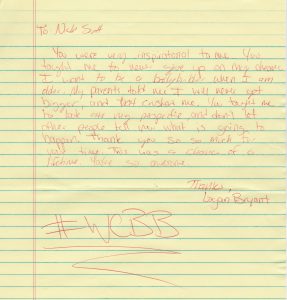 To Nick Scott
You were very inspirational to me. You
taught me to never give up on my dreams.
I want to be a bodybuilder when I am
older. My parents told me I will never get
bigger, and that crushed me. You taught me
to look at my and don't let
other people tell you what is going to
happen. Thank you so so much for
your time. This was a chance of a
lifetime. You're so awesome.
Thanks,
Logan Bryant
#WCBB